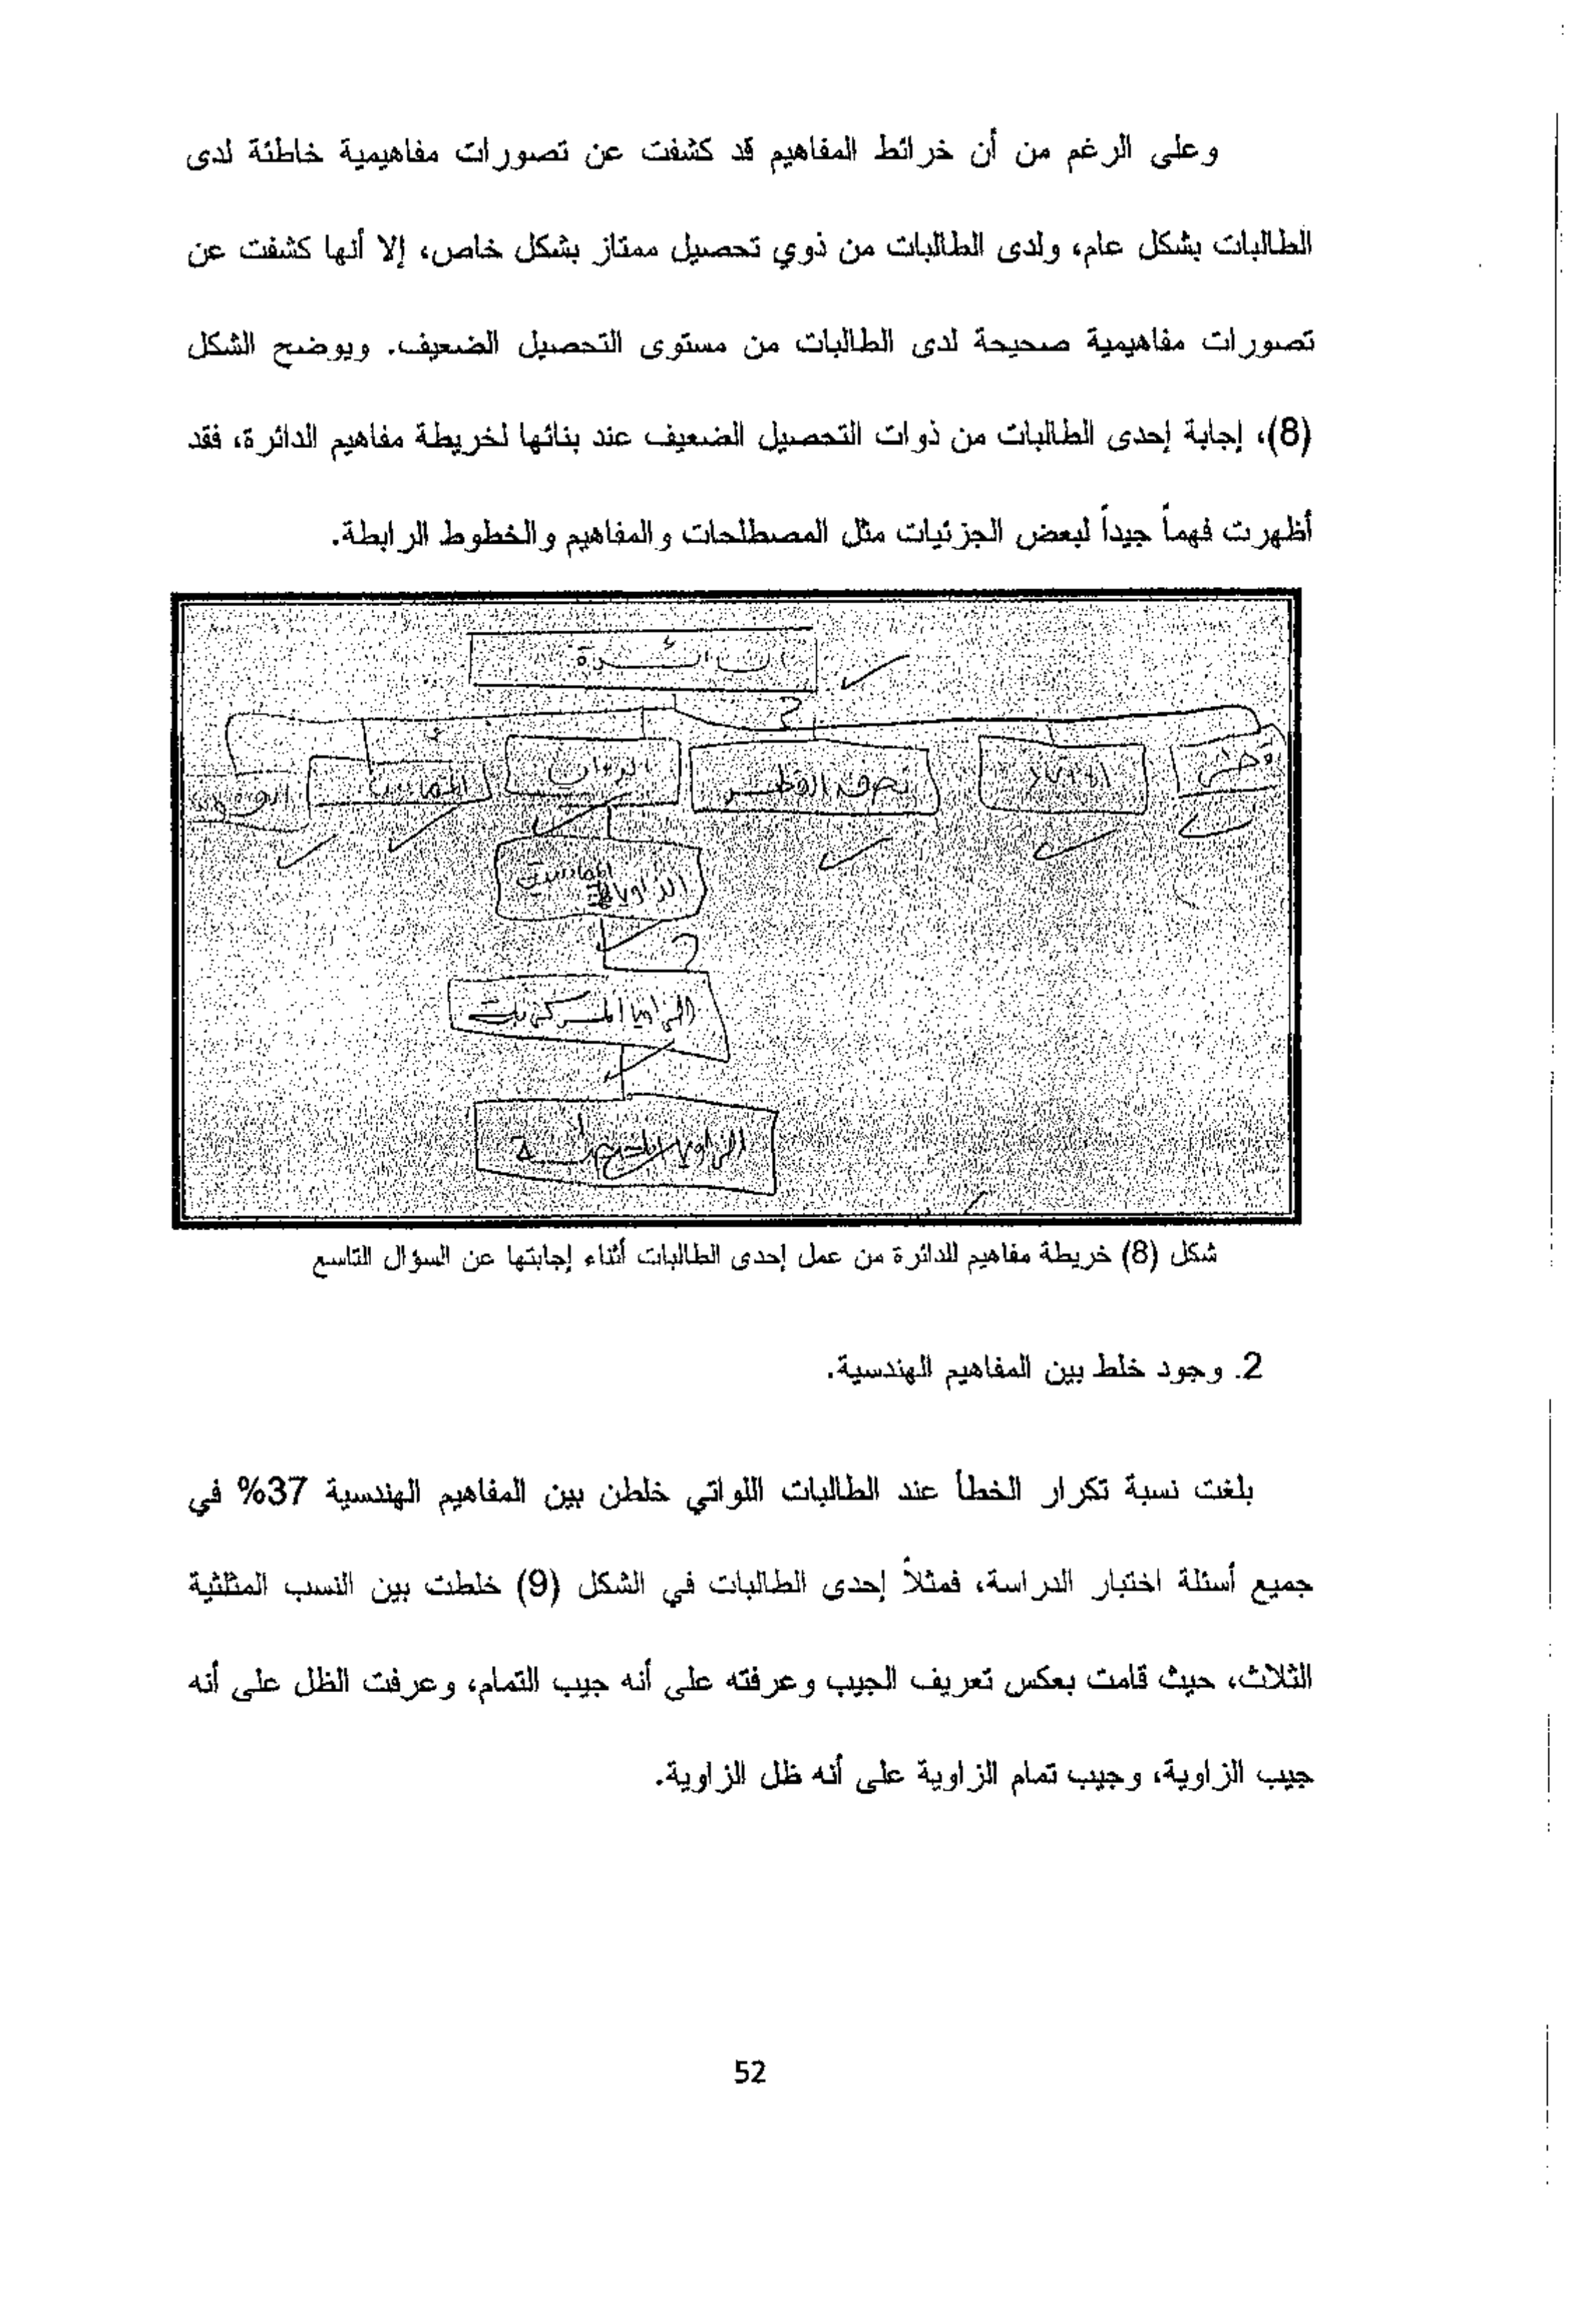 وعلى الرغم من أن خرائط المفاهيم قد كشفت عن تصورات مفاهيمية خاطئة لدى
الطالبات بشكل عام، ولدى الطالبات من ذوي تحصيل ممتاز بشكل خاص، إلا أنها كشفت عن
تصورات مفاهيمية صحيحة لدى الطالبات من مستوى التحصيل الضعيف. ويوضح الشكل
(8)، إجابة إحدى الطالبات من ذوات التحصيل الضعيف عند بنائها لخريطة مفاهيم الدائرة، فقد
أظهرت فهماً جيداً لبعض الجزئيات مثل المصطلحات والمفاهيم والخطوط الرابطة.
الدائرة
قطر
نصف القطر
الزوايا
الزوايا المركزية
الزوايا المحيطية
شكل (8) خريطة مفاهيم للدائرة من عمل إحدى الطالبات أثناء إجابتها عن السؤال التاسع
2. وجود خلط بين المفاهيم الهندسية.
بلغت نسبة تكرار الخطأ عند الطالبات اللواتي خلطن بين المفاهيم الهندسية 37% في
جميع أسئلة اختبار الدراسة، فمثلاً إحدى الطالبات في الشكل (9) خلطت بين النسب المثلثية
الثلاث، حيث قامت بعكس تعريف الجيب وعرفته على أنه جيب التمام، وعرفت الظل على أنه
جيب الزاوية، وجيب تمام الزاوية على أنه ظل الزاوية.
52